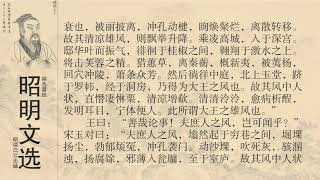 昭明文选
衰也，被丽披离，冲孔动楗，眴焕粲烂，离散转移。
故其清凉雄风，则飘举升降。乘凌高城，入于深宫。
邸华叶而振气，徘徊于桂椒之间，翱翔于激水之上。
将击芙蓉之精。猎蕙草，离秦蘅，概新夷，被荑杨，
回穴冲陵，萧条众芳。然后徜徉中庭，北上玉堂，跻
于罗帏，经于洞房，乃得为大王之风也。故其风中人
状，直憯凄惏栗，清凉增欷。清清泠泠，愈病析酲，
发明耳目，宁体便人。此所谓大王之雄风也。”
王曰：“善哉论事！夫庶人之风，岂可闻乎？”
宋玉对曰：“夫庶人之风，塕然起于穷巷之间，堀堁
扬尘，勃郁烦冤，冲孔袭门。动沙堁，吹死灰，骇溷
浊，扬腐馀，邪薄入瓮牖，至于室庐。故其风中人状，